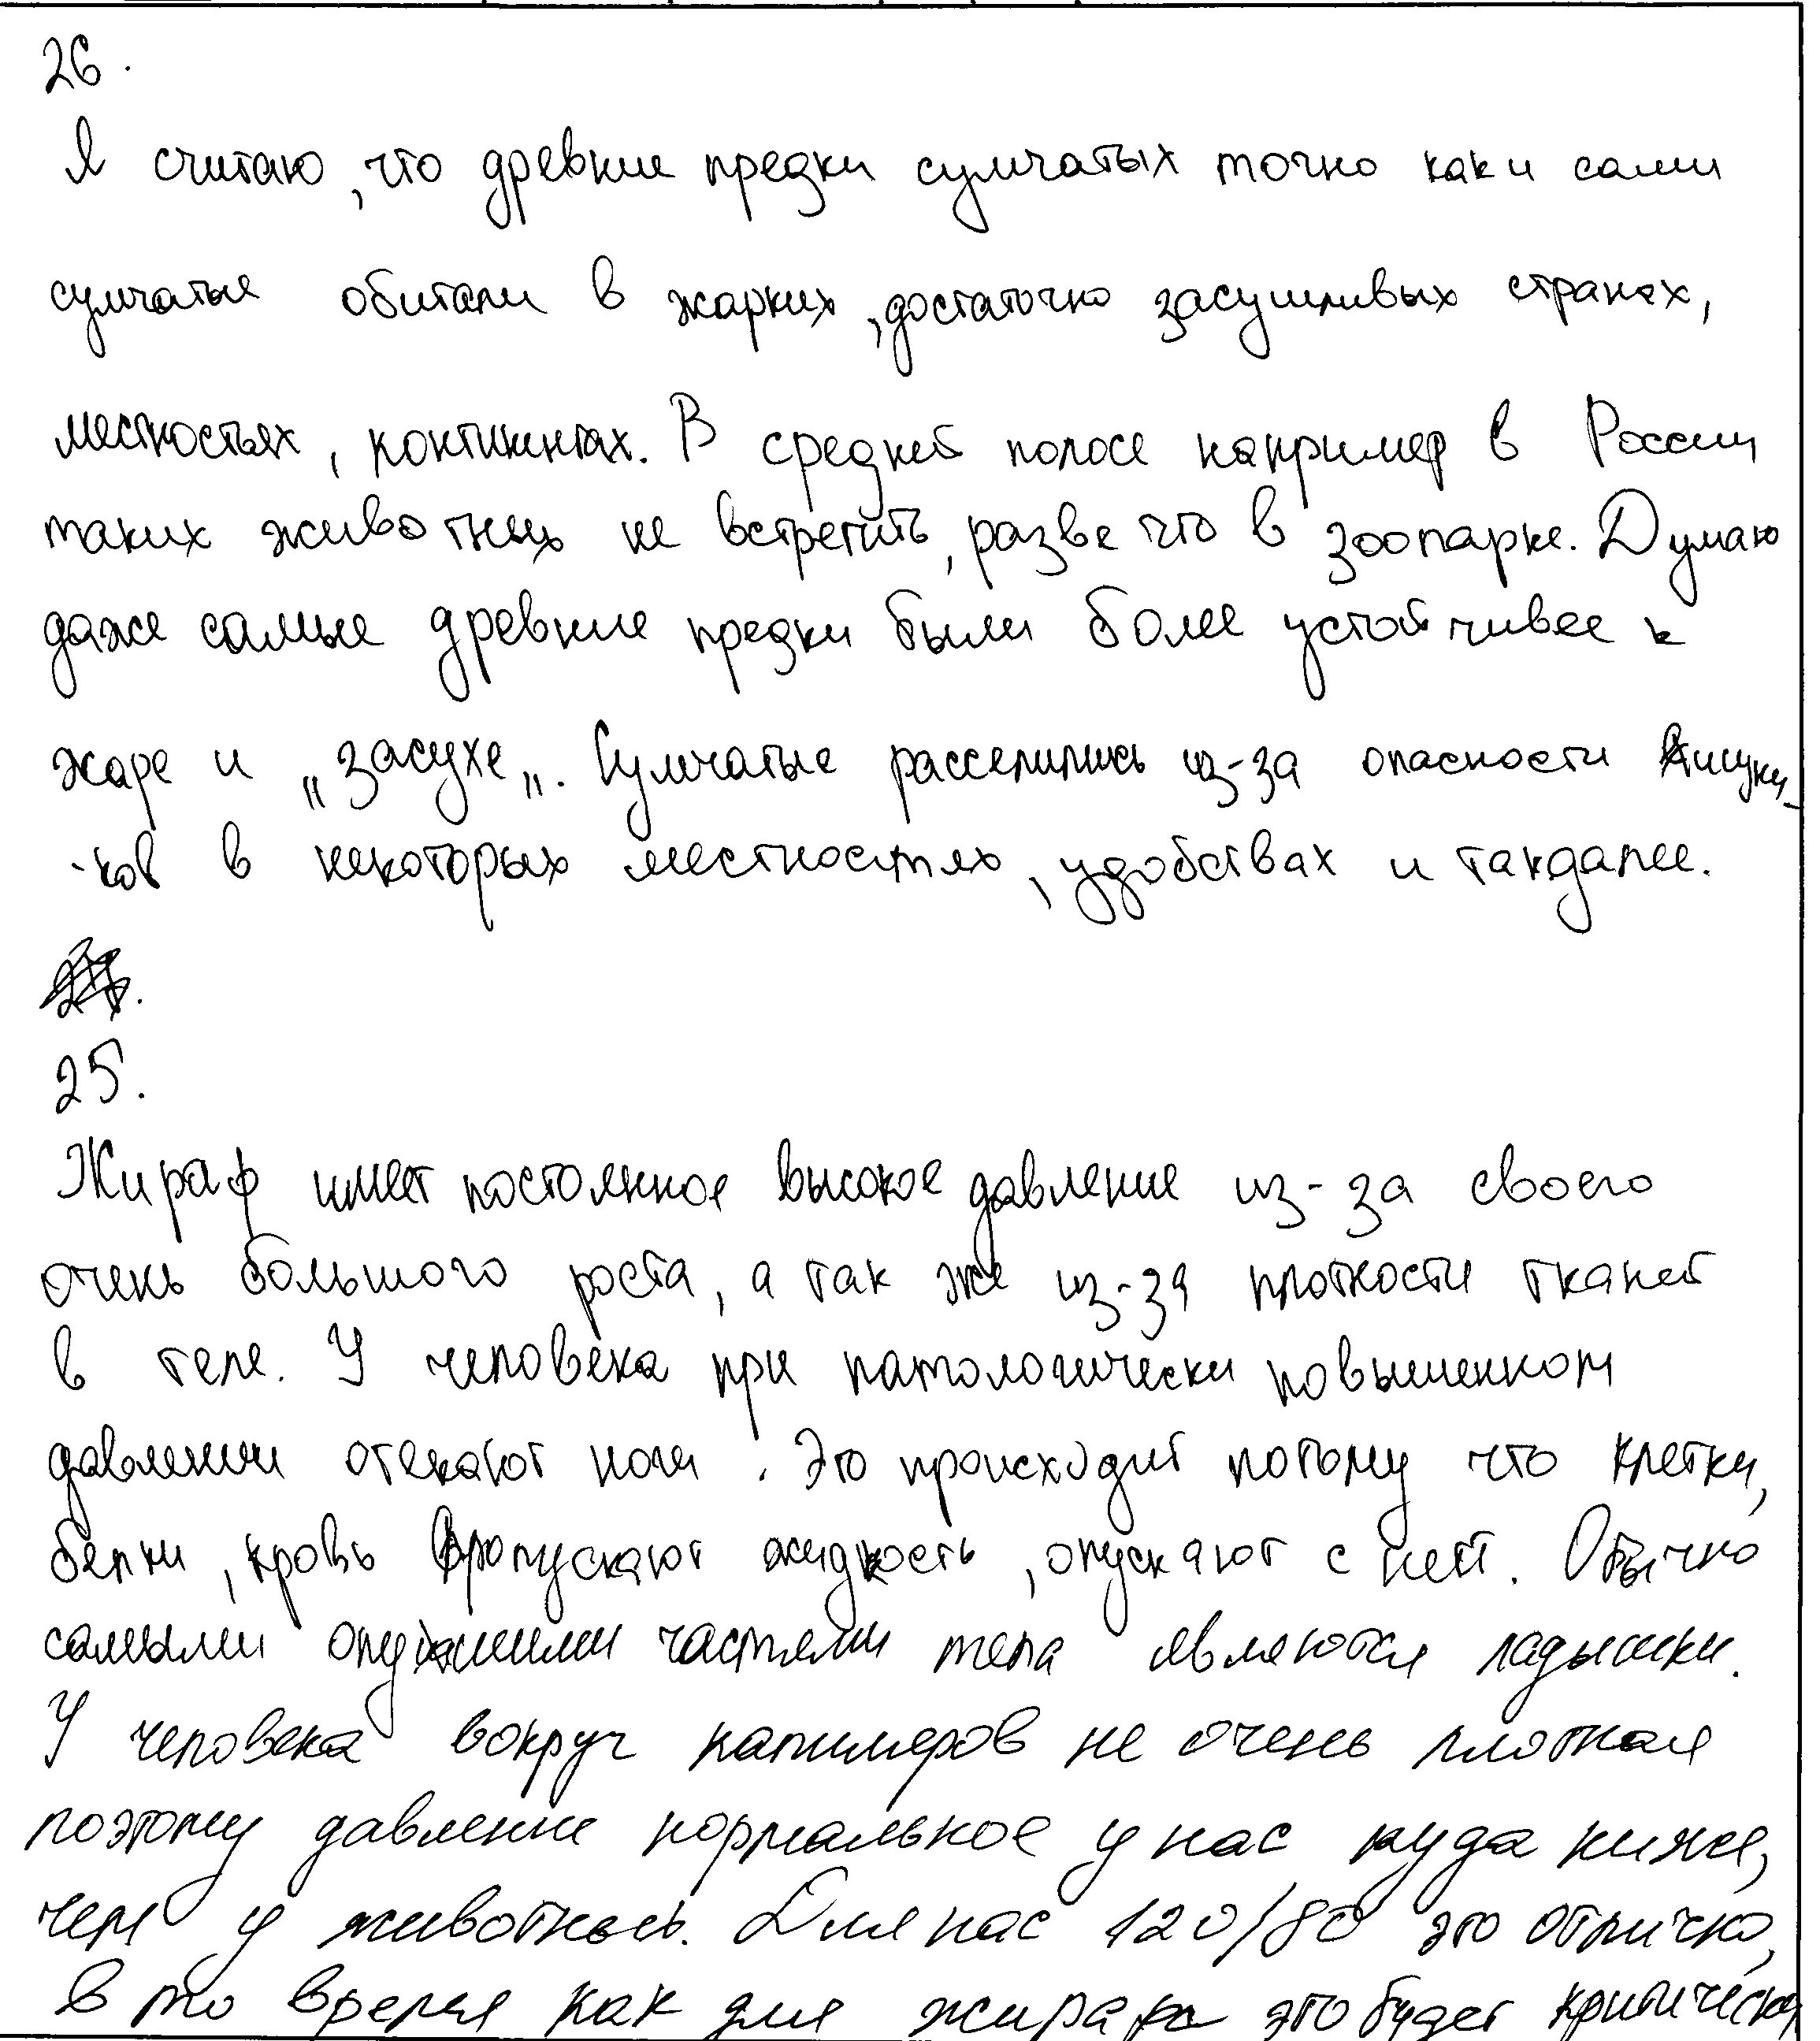 26.
Я считаю, что древние предки сумчатых точно как и сами
сумчатые обитали в жарких, достаточно засушливых странах,
местностьях, континентах. В средней полосе например в России
таких животных не встретить, разве что в зоопарке. Думаю
даже самые древние предки были более устойчивее к
жаре и „засухе„. Сумчатые расселились из-за опасности
ков в некоторых местностях, удобствах и такдалее.
25.
Жираф имеет постоянное высокое давление из-за своего
очень большого роста, а так же из-за плотности тканей
в теле. У человека при патологически повышенном
давлении отекают ноги. Это происходит потому что клетки,
белки, кровь пропускают жидкость, опускают с ней. Обычно
самыми опухшими частями тела являются лодыжки.
У человека вокруг капиляров не очень плотная
поэтому давление нормальное у нас куда ниже,
чем у животных. Для нас 120/80 это отлично,
в то время как для жирафа это будет критически